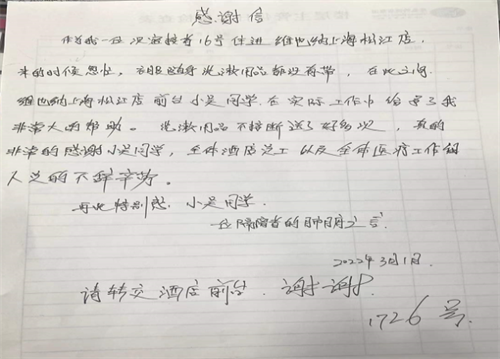 感谢信
作为一位次密接者16号住进维也纳上海松江店,
来的时候忽忙,衣服随身洗漱用品都没有带,在此之间
维也纳上海松江店前台小吴同学在实际工作中给予了我
非常大的帮助。洗漱用品不间断送了好多次,真的
非常的感谢小吴同学,全体酒店员工以及全体医疗工作组
人员的不辞辛劳。
再此特别感 小吴同学.
一位隔离者的肺腑之言
2022年3月1日.
请转交酒店前台.谢谢.
1726号.